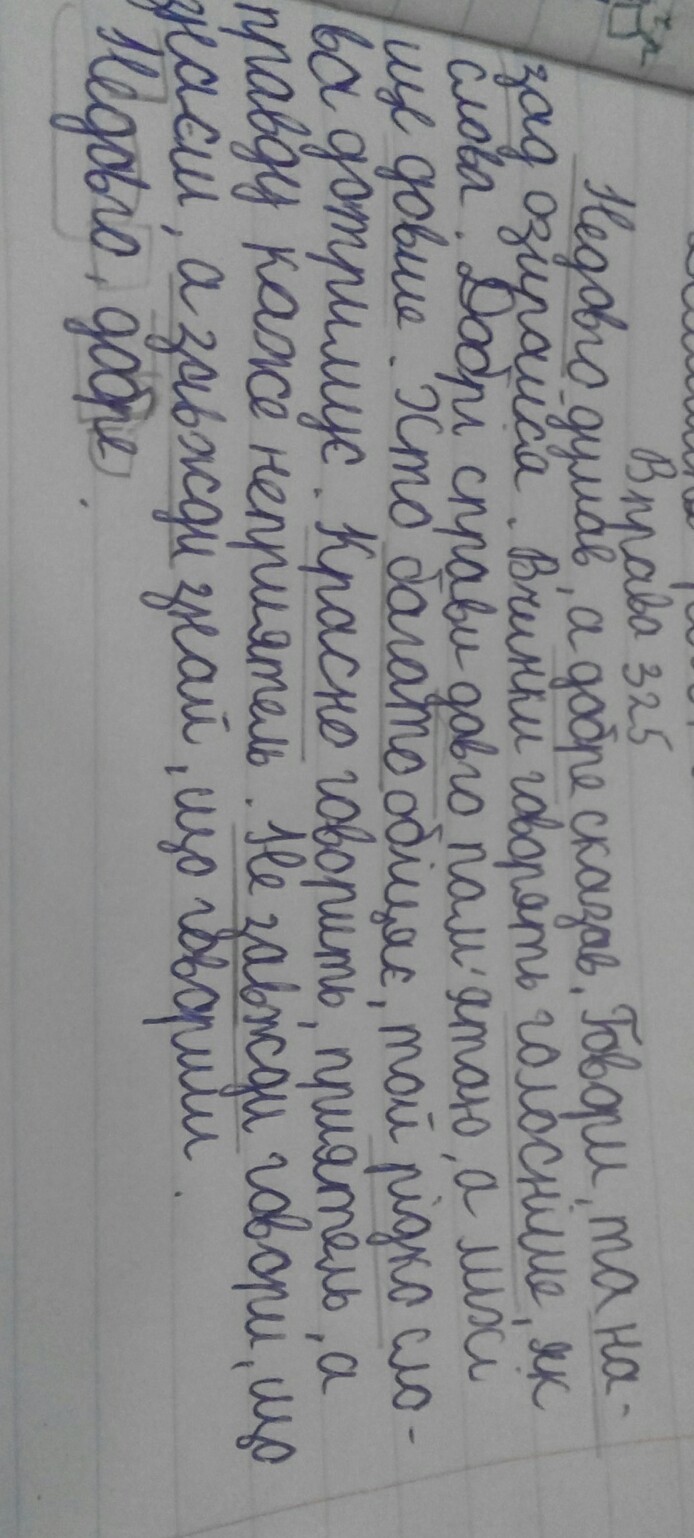 Вправа 325
Недовго думав, а добре сказав. Говори, та на-
зад озирайся. Вчинки говорять голосніше, як
слова. Добрі справи довго пам'ятаю, а
ще довше. Хто багато обіцяє, той рідко сло-
ва дотримує. Красно говорить, приятель, а
правду каже неприятель. Не завжди говори, що
знаєш, а завжди знай, що говориш.
Недовго, добре